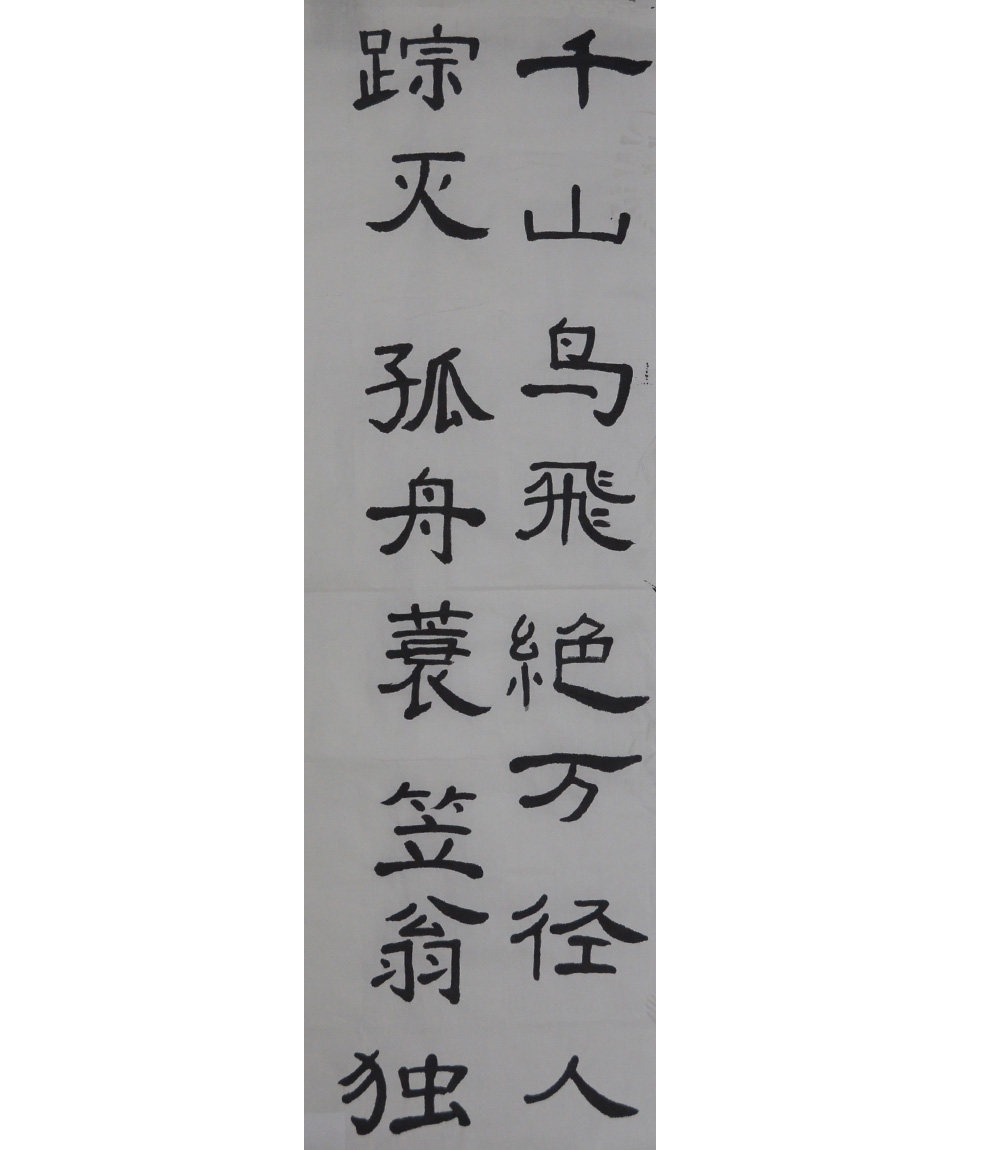 千山鸟飛絶万径人
踪灭孤舟蓑笠翁独